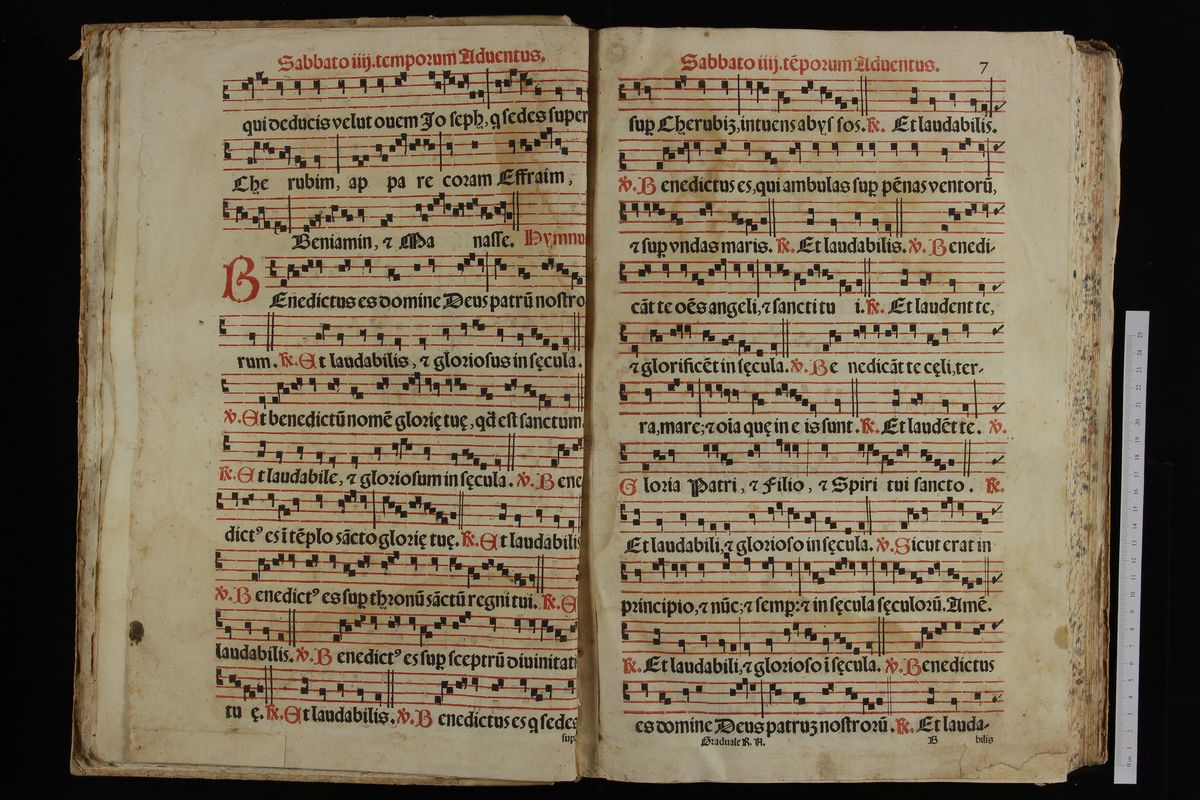 Sabbato iiij. temporum Aduentus.
qui deducis velut ouem Jo seph, q sedes super
Che rubim, ap pa re coram Effraim,
Beniamin, ⁊ Ma nasse. Hymnu
BEnedictus es domine Deus patrū nostro
rum. ℟. Et laudabilis, ⁊ gloriosus in sęcula.
℣. Et benedictū nomē glorię tuę, qd̄ est sanctum
℟. Et laudabile, ⁊ gloriosum in sęcula. ℣. Bene
dictꝰ es ī tēplo sācto glorię tuę. ℟. Et laudabilis
℣. Benedictꝰ es suꝑ thronū sāctū regni tui. ℟. E
laudabilis. ℣. Benedictꝰ es suꝑ sceptrū diuinitati
tu ę. ℟. Et laudabilis. ℣. Benedictus es q sedes
sup
Sabbato iiij. tēporum Aduentus. 7
suꝑ Cherubiʒ, intuens abys sos. ℟. Et laudabilis.
℣. Benedictus es, qui ambulas suꝑ pēnas ventorū,
⁊ suꝑ vndas maris. ℟. Et laudabilis. ℣. Benedi-
cāt te oēs angeli, ⁊ sancti tu i. ℟. Et laudent te,
⁊ glorificēt in sęcula. ℣. Be nedicāt te cęli, ter-
ra, mare; ⁊ oīa quę in e is sunt. ℟. Et laudēt te. ℣.
Gloria Patri, ⁊ Filio, ⁊ Spiri tui sancto. ℟.
Et laudabili, ⁊ glorioso in sęcula. ℣. Sicut erat in
principio, ⁊ nūc; ⁊ semꝑ: ⁊ in sęcula sęculorū. Amē.
℟. Et laudabili, ⁊ glorioso ī sęcula. ℣. Benedictus
es domine Deus patruʒ nostrorū. ℟. Et lauda-
Graduale R. A. B bilis